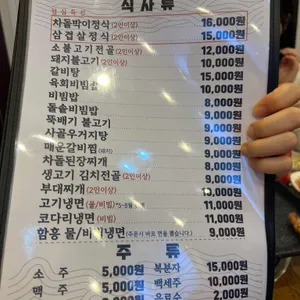 식 사 류
점심특선
차돌박이정식(2인이상) 16,000원
삼겹살정식(2인이상) 15,000원
소불고기전골(2인이상) 12,000원
돼지불고기(2인이상) 10,000원
갈비탕 15,000원
육회비빔밥 10,000원
비빔밥 8,000원
돌솥비빔밥 9,000원
뚝배기 불고기 9,000원
사골우거지탕 9,000원
매운갈비찜(돼지) 9,000원
차돌된장찌개 8,000원
생고기 김치전골(2인이상) 9,000원
부대찌개(2인이상) 10,000원
고기냉면(물/비빔) 11,000원
코다리냉면(비빔) 11,000원
함흥 물/비빔냉면(주문시 바로 면을 뽑습니다.) 9,000원
주 류
소 주 5,000원 복분자 15,000원
맥 주 5,000원 백세주 10,000원
음료수 2,000원